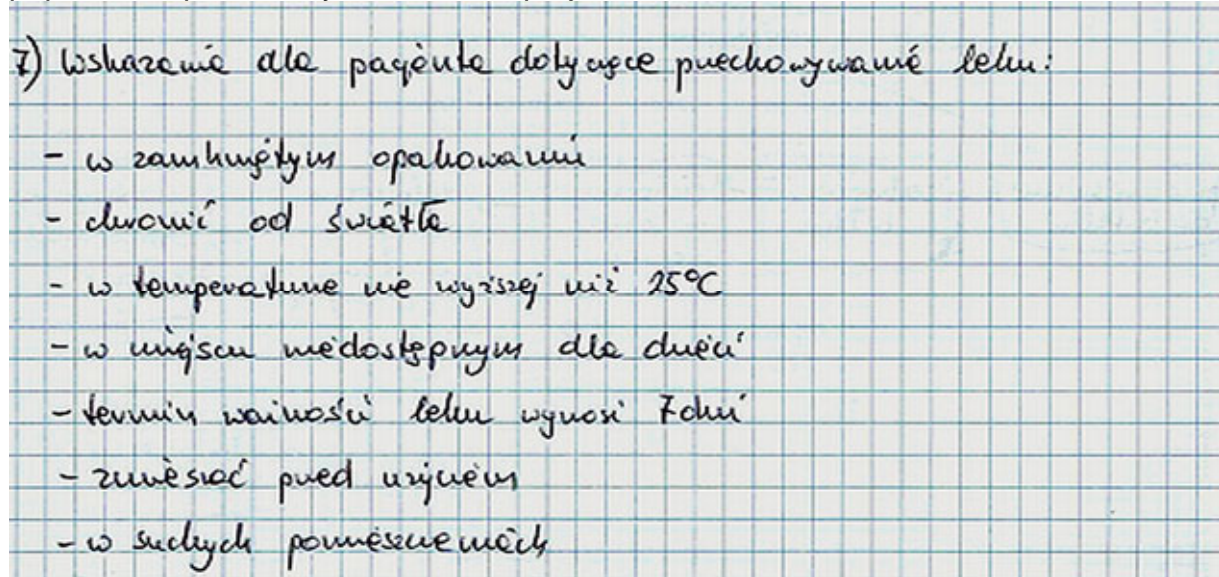 7) Wskazania dla pacjenta dotyczące przechowywania leku:
- w zamkniętym opakowaniu
- chronić od światła
- w temperaturze nie wyższej niż 25°C
- w miejscu niedostępnym dla dzieci
- termin ważności leku wynosi 7 dni
- zmieszać przed użyciem
- w suchych pomieszczeniach